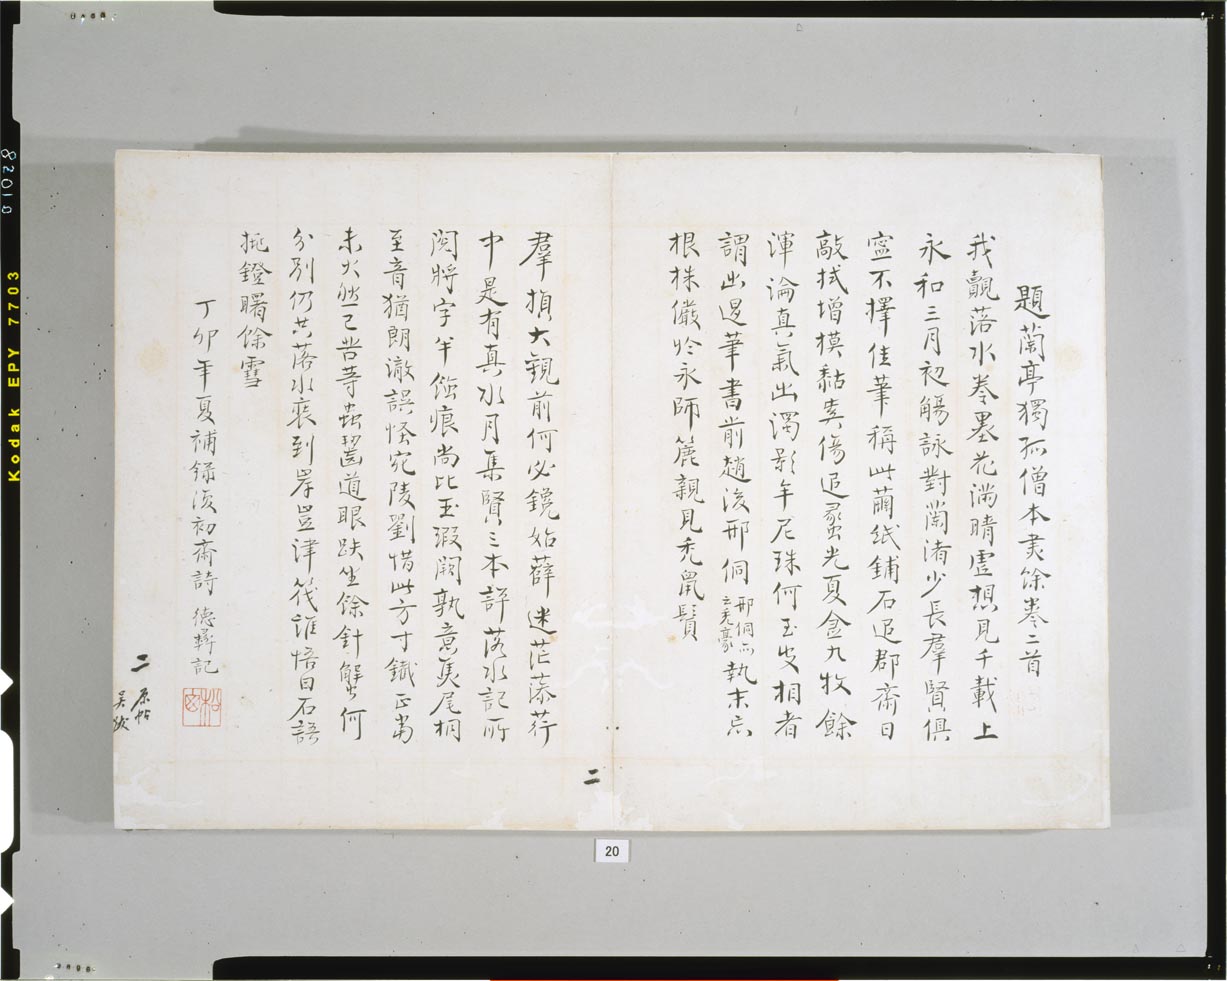 題蘭亭獨孤僧本燼餘卷二首
我觀落水卷墨花滿晴虛想見千載上
永和三月初觴詠對蘭渚少長羣賢俱
寧不擇佳筆稱此繭紙鋪石退郡齋日
敲拭增模黏真傷退蠡光夏盒九牧餘
渾淪真氣出濁影牟尼珠何玉相者
謂出退筆書前趙後邢侗
邢侗云禿毫
執末忘
根株儼然永師簏親見禿鼠鬚
羣損大觀前何必鑱始薛迷茫藻荇
中是有真水月集賢三本評落水記所
闕將字半蝕痕尚比玉瑕闕孰意焦尾桐
至音猶朗澈誤怪宛陵劉惜此方寸鐵正當
未火然已苦等蟲齧道眼趺坐餘針解何
分別仍共落水裹到岸豈津筏誰悟白石語
挑鐙曙餘雪
丁卯年夏補錄復初齋詩 德彝記
二
二
原帖
吳
20
01028
Kodak EPY 7703